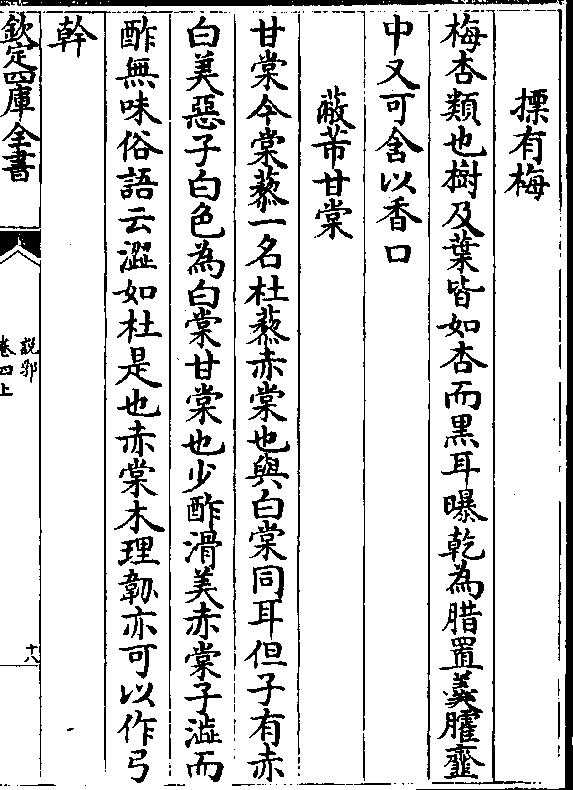 摽有梅
梅杏類也樹及葉皆如杏而黒耳曝乾為腊置羮臛韲
中又可含以香口
蔽芾甘棠
甘棠今棠藜一名杜藜赤棠也與白棠同耳但子有赤
白美惡子白色為白棠甘棠也少酢滑美赤棠子澁而
酢無味俗語云澀如杜是也赤棠木理韌亦可以作弓
幹
欽定四庫全書
說郛
卷四上
十八